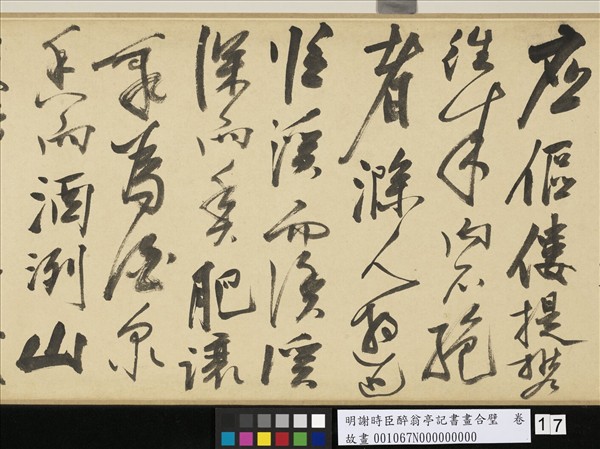 應傴僂提攜
往來而不絕
者滁人遊也
臨溪而漁溪
深而魚肥釀
泉為酒泉
香而酒洌山
明謝時臣醉翁亭記書畫合璧 卷
故畫 001067N000000000
17